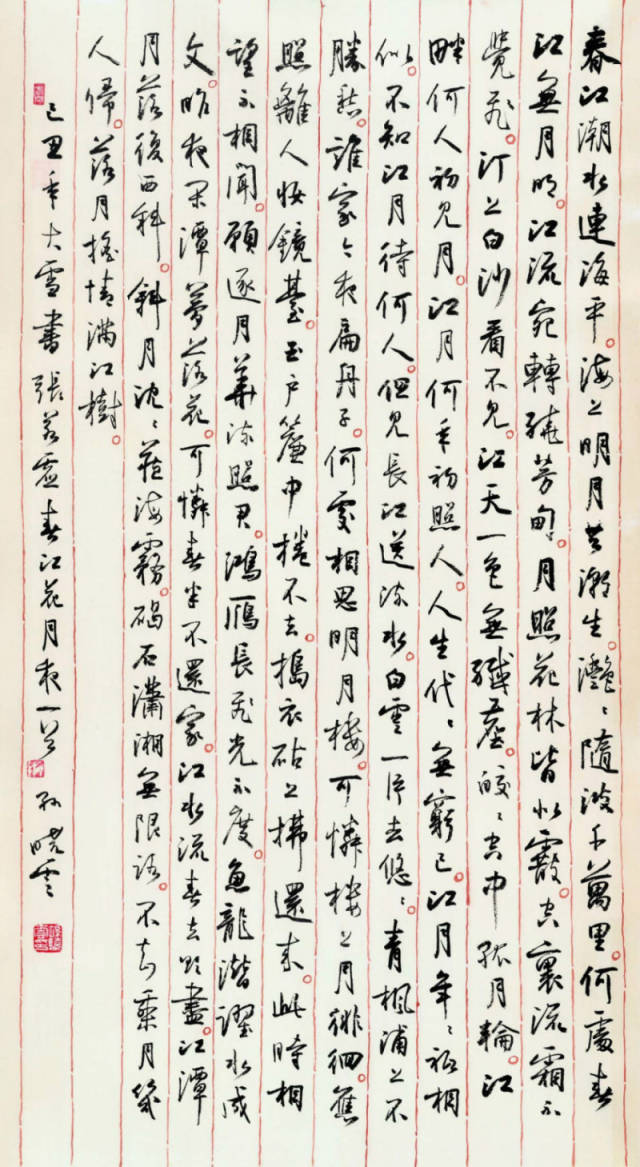 春江潮水連海平。海上明月共潮生。灩々隨波千萬里。何處春
江無月明。江流宛轉繞芳甸。月照花林皆似霰。空裏流霜不
覺飛。汀上白沙看不見。江天一色無纖塵。皎々空中孤月輪。江
畔何人初見月。江月何年初照人。人生代々無窮已。江月年々祗相
似。不知江月待何人。但見長江送流水。白雲一片去悠々。青楓浦上不
勝愁。誰家今夜扁舟子。何處相思明月樓。可憐樓上月徘徊。應
照離人妝鏡臺。玉戶簾中捲不去。搗衣砧上拂還來。此時相
望不相聞。願逐月華流照君。鴻雁長飛光不度。魚龍潛躍水成
文。昨夜閑潭夢落花。可憐春半不還家。江水流春去欲盡。江潭
月落復西斜。斜月沈々藏海霧。碣石瀟湘無限路。不知乘月幾
人歸。落月搖情滿江樹。
己丑年大雪書張若虛春江花月夜一首 孫曉雲